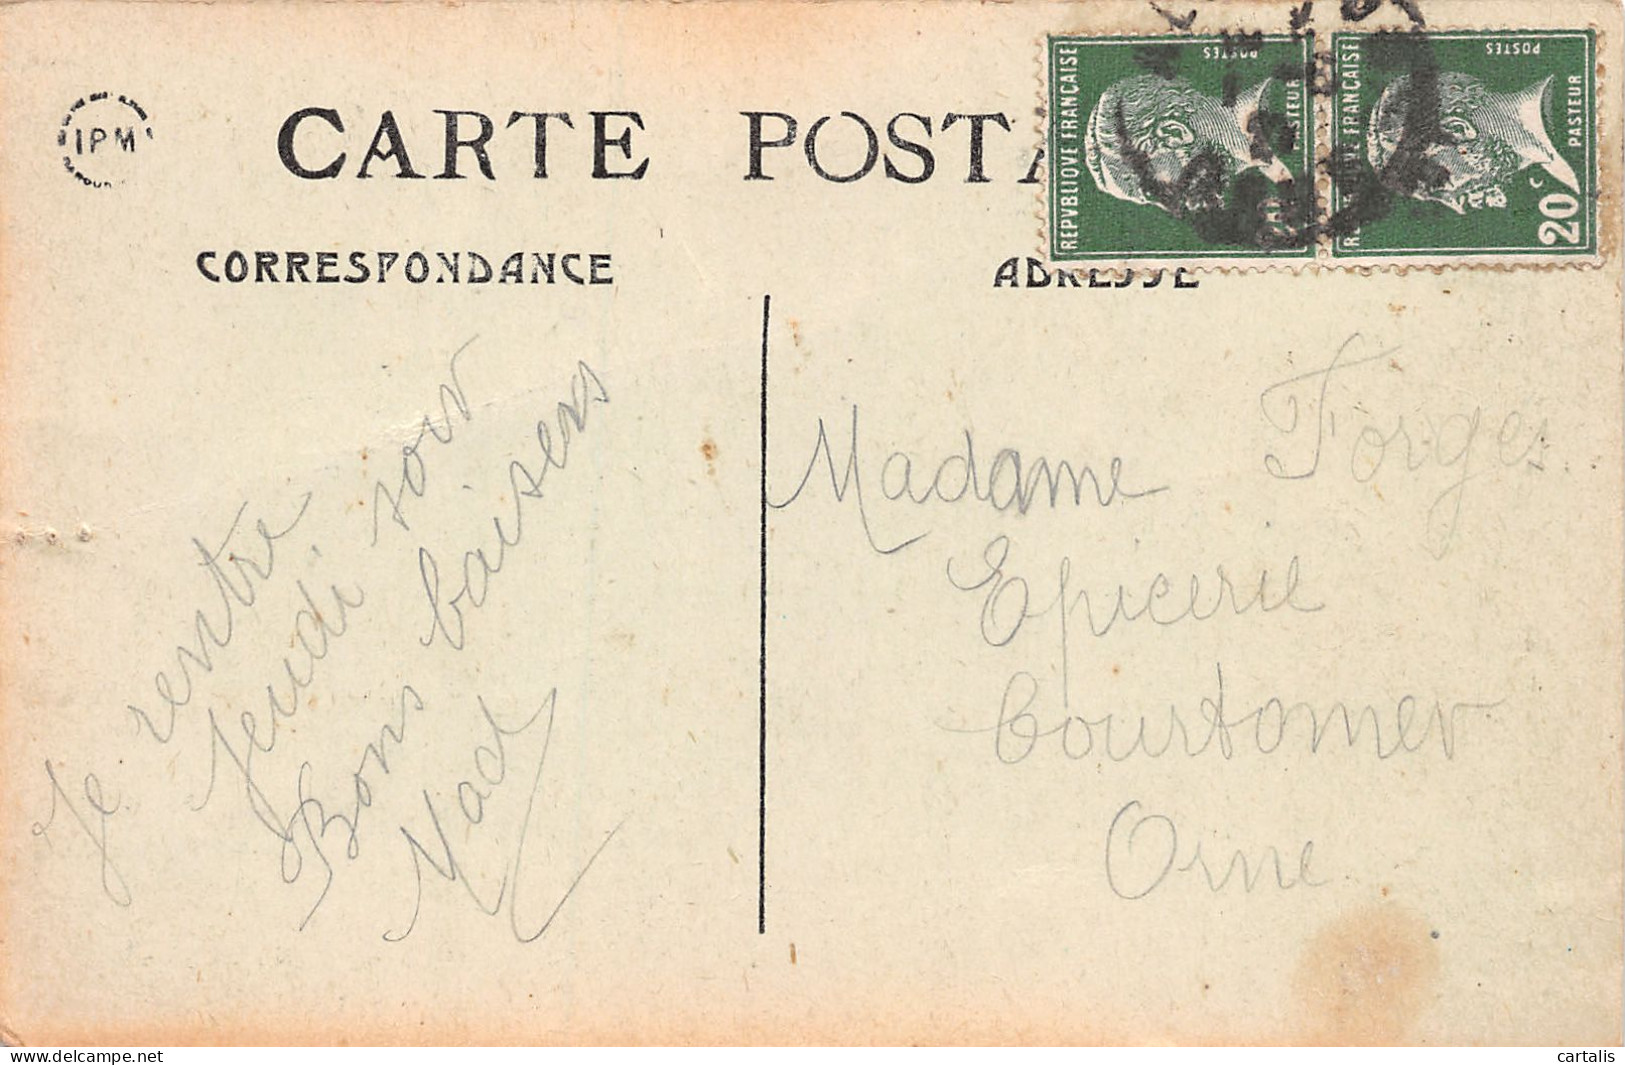 IPM
CARTE POSTA
REPVBLIQVE FRANÇAISE
POSTES
PASTEUR
REPVBLIQVE FRANÇAISE
POSTES
PASTEUR
20c
CORRESPONDANCE
ADRESSE
Je rentre
Jeudi soir
Bons baisers
Mad
Madame Forges
Epicerie
Courtomer
Orne
delcampe.net
cartalis